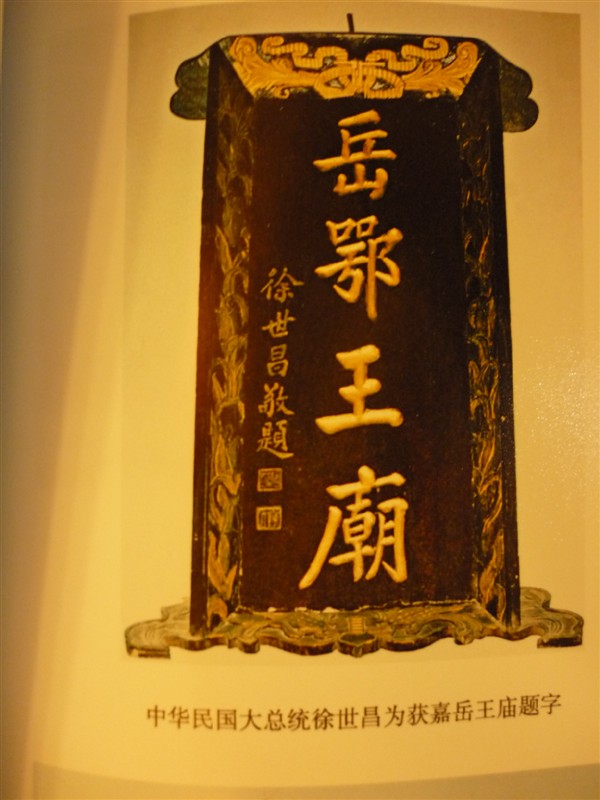 岳鄂王廟
徐世昌敬題
中华民国大总统徐世昌为获嘉岳王庙题字